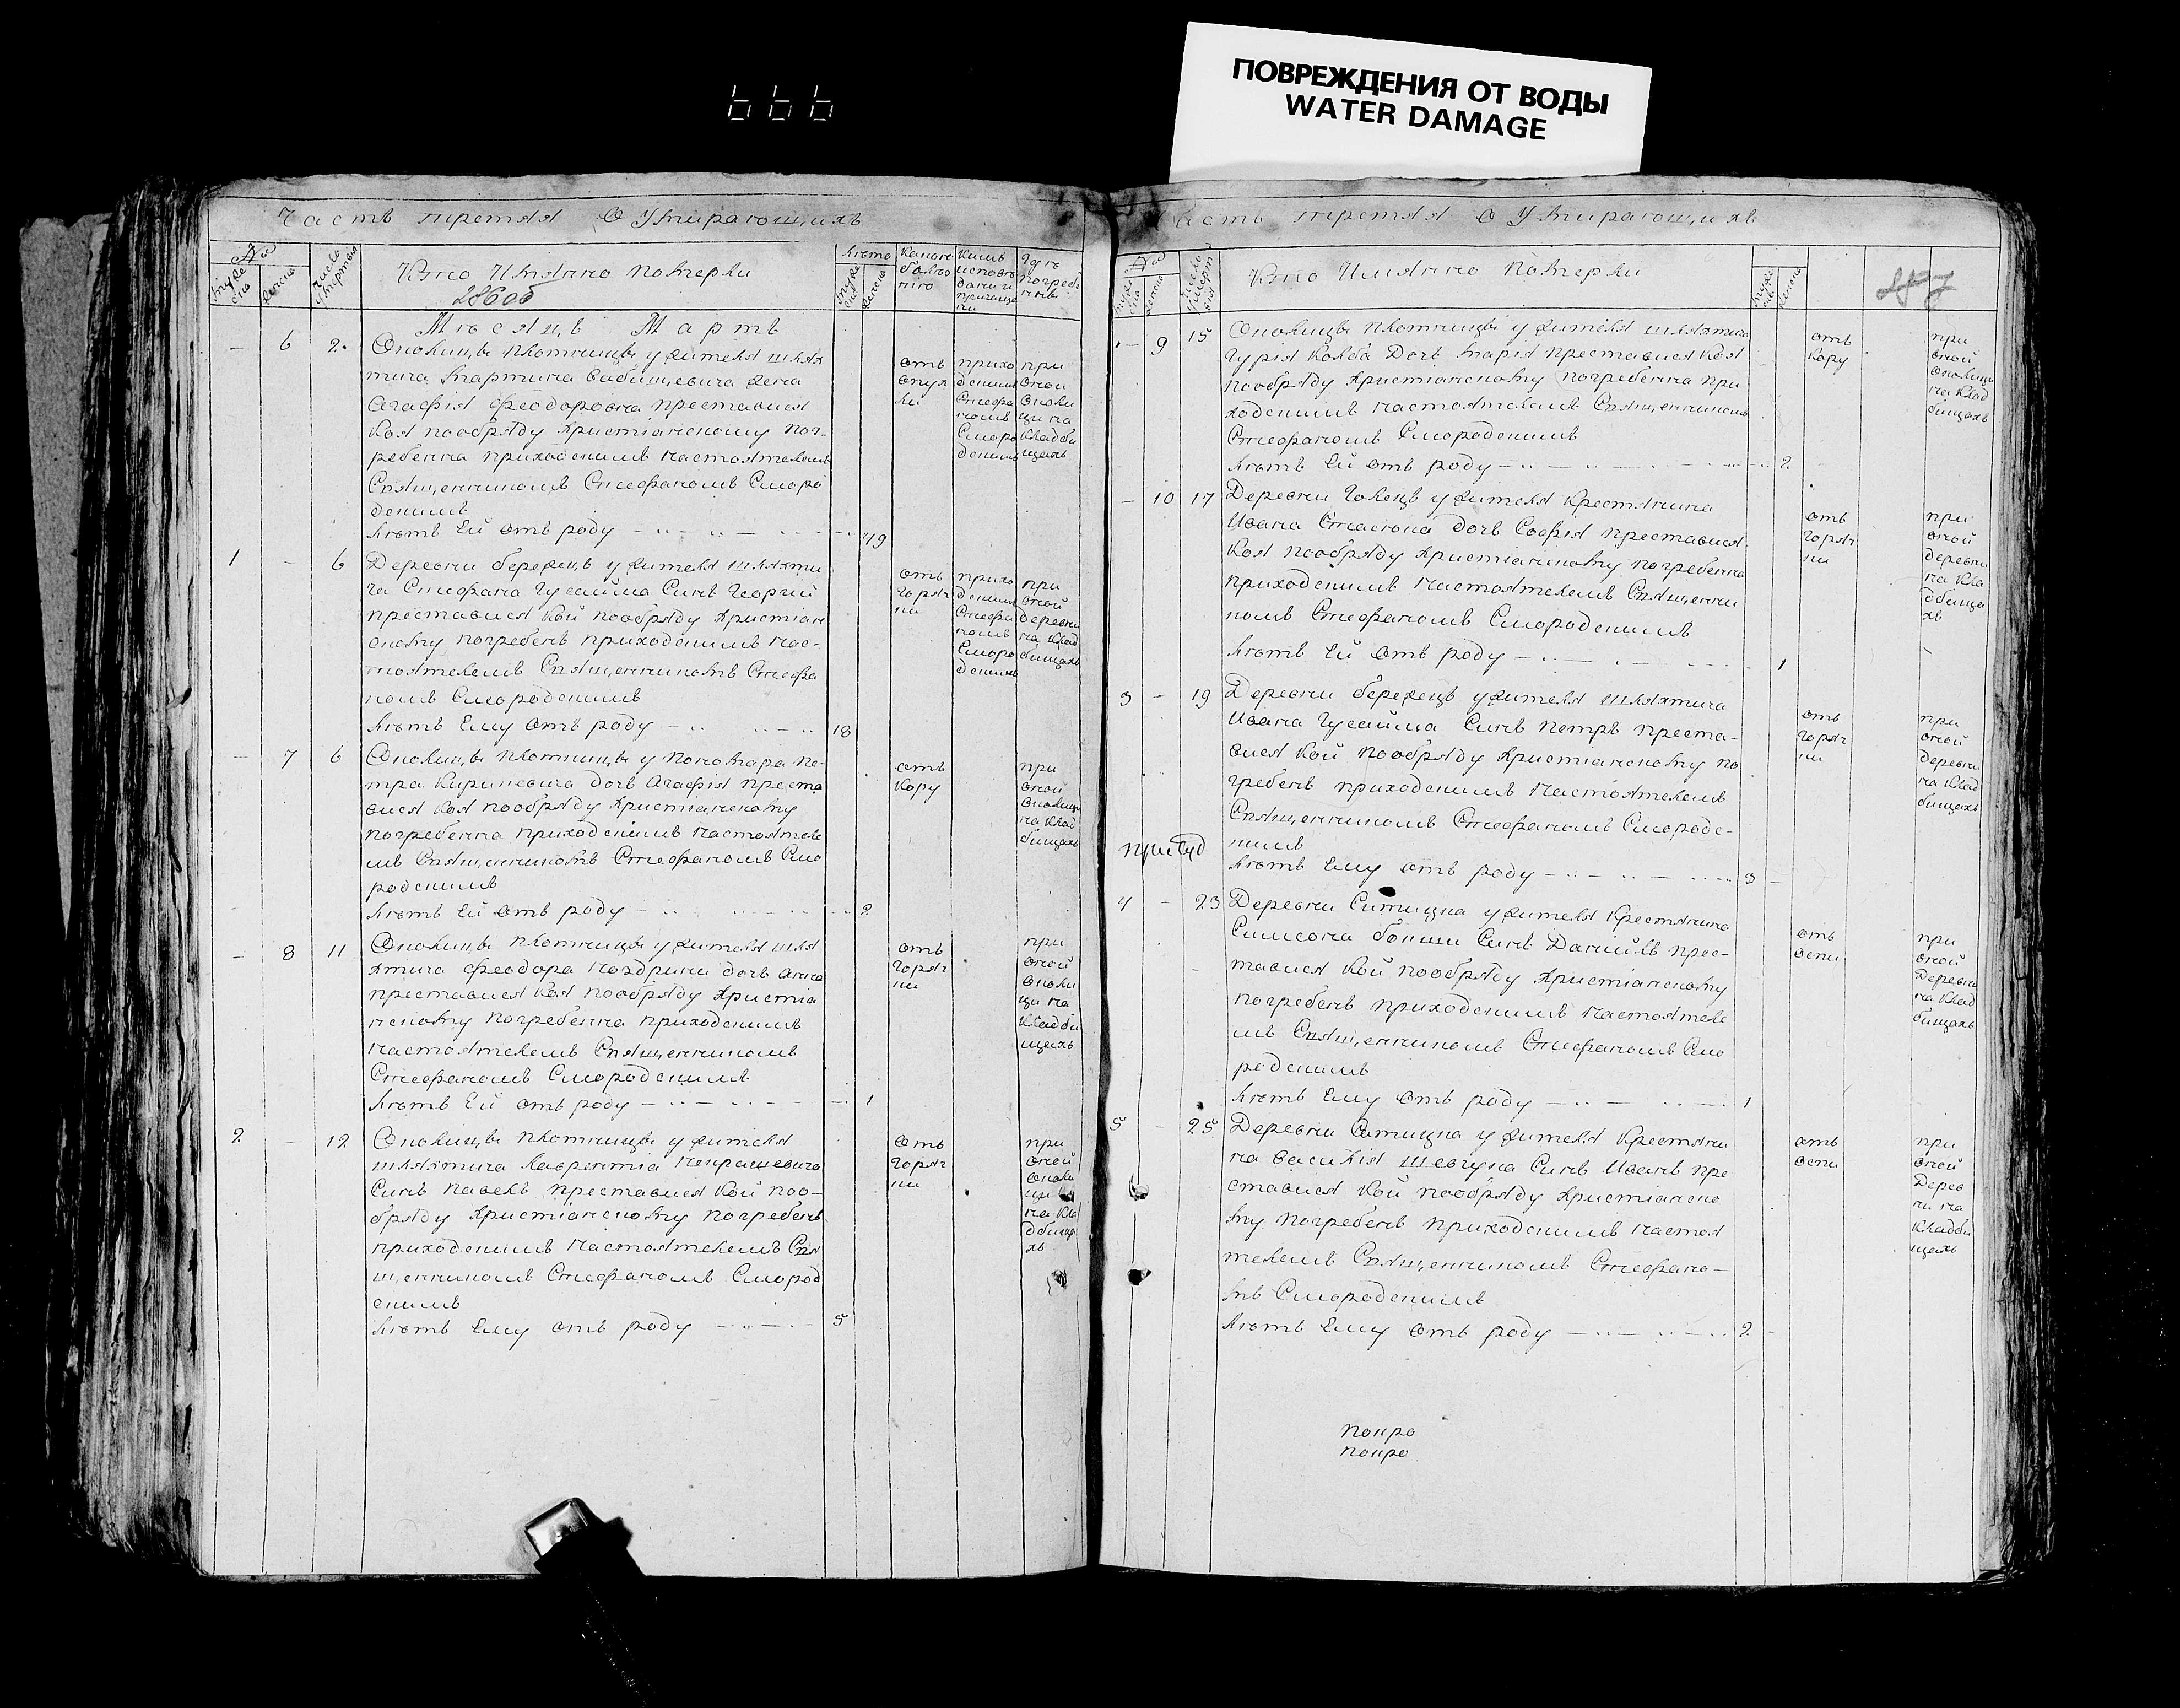 ПОВРЕЖДЕНИЯ ОТ ВОДЫ
WATER DAMAGE
Часть третяя О Умирающихъ
№
Число умертвія
Кто Имянно померли
Лѣта
Какою болѣзнію
Кѣмъ исповѣданы и причащены
Гдѣ погребены
Мѣсяцъ Мартъ
6 2
Околицы Плотницы у жителя шлях
тича Мартина жена
Агафія Феодоровна преставися
Коя пообряду Христіанскому пог-
ребенна приходскимъ настоятелемъ
Священникомъ Стефаномъ Смород
скимъ
Лѣтъ Ей отъ роду 49
отъ опухли
приходскимъ Стефаномъ Смородскимъ
при оной околици на кладбищахъ
1 - 6
Деревни Бережецъ у жителя шляхти
ча Стефана Сынъ Георгій
преставися кой пообряду Христіан
скому погребенъ приходскимъ нас-
тоятелемъ Священникомъ Стефа
номъ Смородскимъ
Лѣтъ Ему отъ роду 18
отъ горячки
приходскимъ Стефаномъ Смородскимъ
при оной деревни на кладбищахъ
- 7 6
Околицы Плотницы у Пономара Пе-
тра Кириневича дочь Агафія преста
вися коя пообряду Христіанскому
погребенна приходскимъ настоятеле
мъ Священникомъ Стефаномъ Смо
родскимъ
Лѣтъ Ей отъ роду 2
отъ кору
при оной околици на кладбищахъ
- 8 11
Околицы Плотницы у жителя шля
хтича Феодора дочь Анна
преставися коя пообряду Христіа
нскому погребенна приходскимъ
настоятелемъ Священникомъ
Стефаномъ Смородскимъ
Лѣтъ Ей отъ роду 1
отъ горячки
при оной околици на кладбищахъ
2 - 12
Околицы Плотницы у жителя
шляхтича Лаврентія Некрашевича
Сынъ Павелъ преставися кой поо-
бряду Христіанскому погребенъ
приходскимъ настоятелемъ Свя
щенникомъ Стефаномъ Смород
скимъ
Лѣтъ Ему отъ роду 5
отъ горячки
при оной околици на кладбищахъ
Часть третяя О Умирающихъ
Кто Имянно Померли
- 9 15
Околицы Плотницы у жителя шляхтича
Гурія Колба Дочь Марія преставися коя
пообряду Христіанскому погребенна при
ходскимъ настоятелемъ Священникомъ
Стефаномъ Смородскимъ
Лѣтъ Ей отъ роду 2
отъ кору
при оной околици на кладбищахъ
- 10 17
Деревни у жителя Крестянина
Ивана дочь Софія преставися
коя пообряду Христіанскому погребенна
приходскимъ настоятелемъ Священни
комъ Стефаномъ Смородскимъ
Лѣтъ Ей отъ роду 1
отъ горячки
при оной деревни на кладбищахъ
3 - 19
Деревни Бережецъ у жителя шляхтича
Ивана Сынъ Петръ преста-
вися кой пообряду Христіанскому по
гребенъ приходскимъ настоятелемъ
Священникомъ Стефаномъ Смородс-
кимъ
Лѣтъ Ему отъ роду 3
отъ горячки
при оной деревни на кладбищахъ
4 - 23
Деревни Ситицка у жителя Крестянина
Симеона Сынъ Даніилъ прес-
тавися кой пообряду Христіанскому
погребенъ приходскимъ настоятеле
мъ Священникомъ Стефаномъ Смо
родскимъ
Лѣтъ Ему отъ роду 1
отъ оспи
при оной деревни на кладбищахъ
5 - 25
Деревни Ситицка у жителя Крестяни
на Василія Шевчука Сынъ Иванъ пре
ставися кой пообряду Христіанско
му погребенъ приходскимъ настоя
телемъ Священникомъ Стефано-
мъ Смородскимъ
Лѣтъ Ему отъ роду 2
отъ оспи
при оной деревни на кладбищахъ